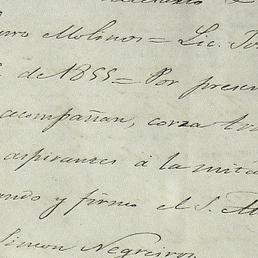 uro Molinos = Lic. To
de 1855 = Por presen
acompañan, corza tra
aspirantes á la mita
ando y firmo el S. M
Simon Negreiros